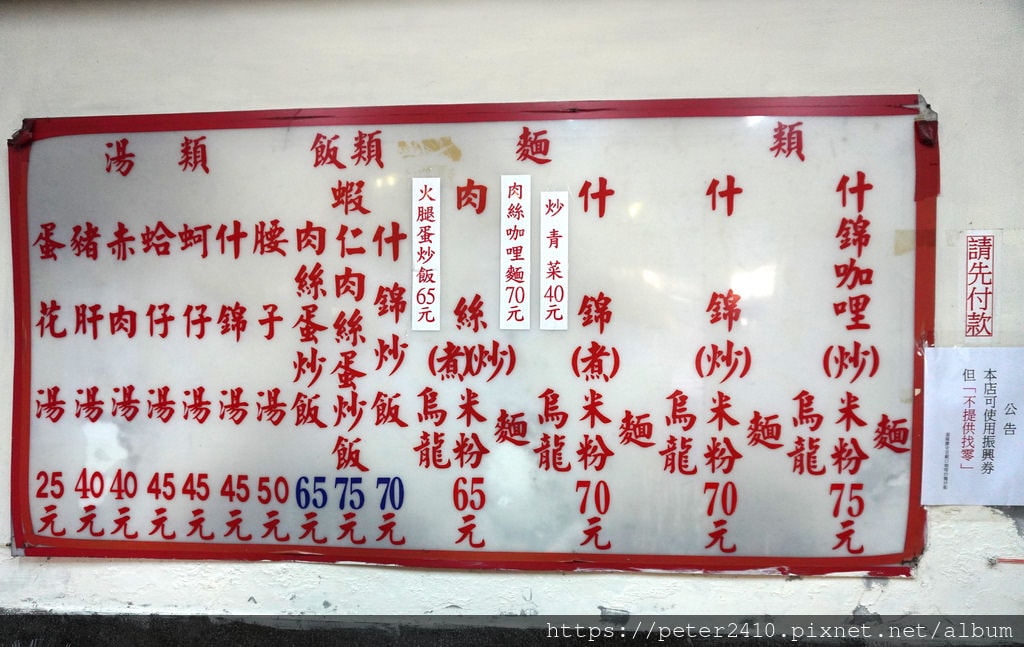 湯類
蛋花湯25元
豬肝湯40元
赤肉湯40元
蛤仔湯45元
蚵仔湯45元
什錦湯45元
腰子湯50元
飯類
肉絲蛋炒飯65元
蝦仁肉絲蛋炒飯75元
什錦炒飯70元
火腿蛋炒飯65元
麵類
肉絲(煮)(炒)烏龍米粉麵65元
肉絲咖哩麵70元
炒青菜40元
什錦(煮)烏龍米粉麵70元
什錦(炒)烏龍米粉麵70元
什錦咖哩(炒)烏龍米粉麵75元
請先付款
公告
本店可使用振興券
但「不提供找零」
https://peter2410.pixnet.net/album